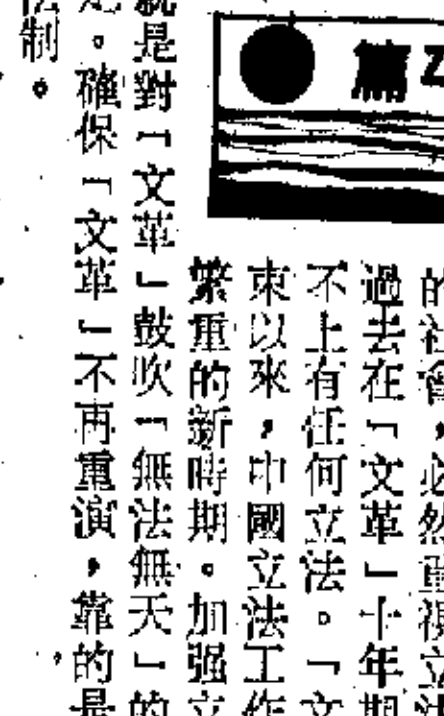 篇
的社會，必然重視立法
過去在「文革」十年期
不上有任何立法。「文
束以來，中國立法工作
繁重的新時期。加强立
就是對「文革」鼓吹「無法無天」的
。確保「文革」不再重演，靠的是
法制。